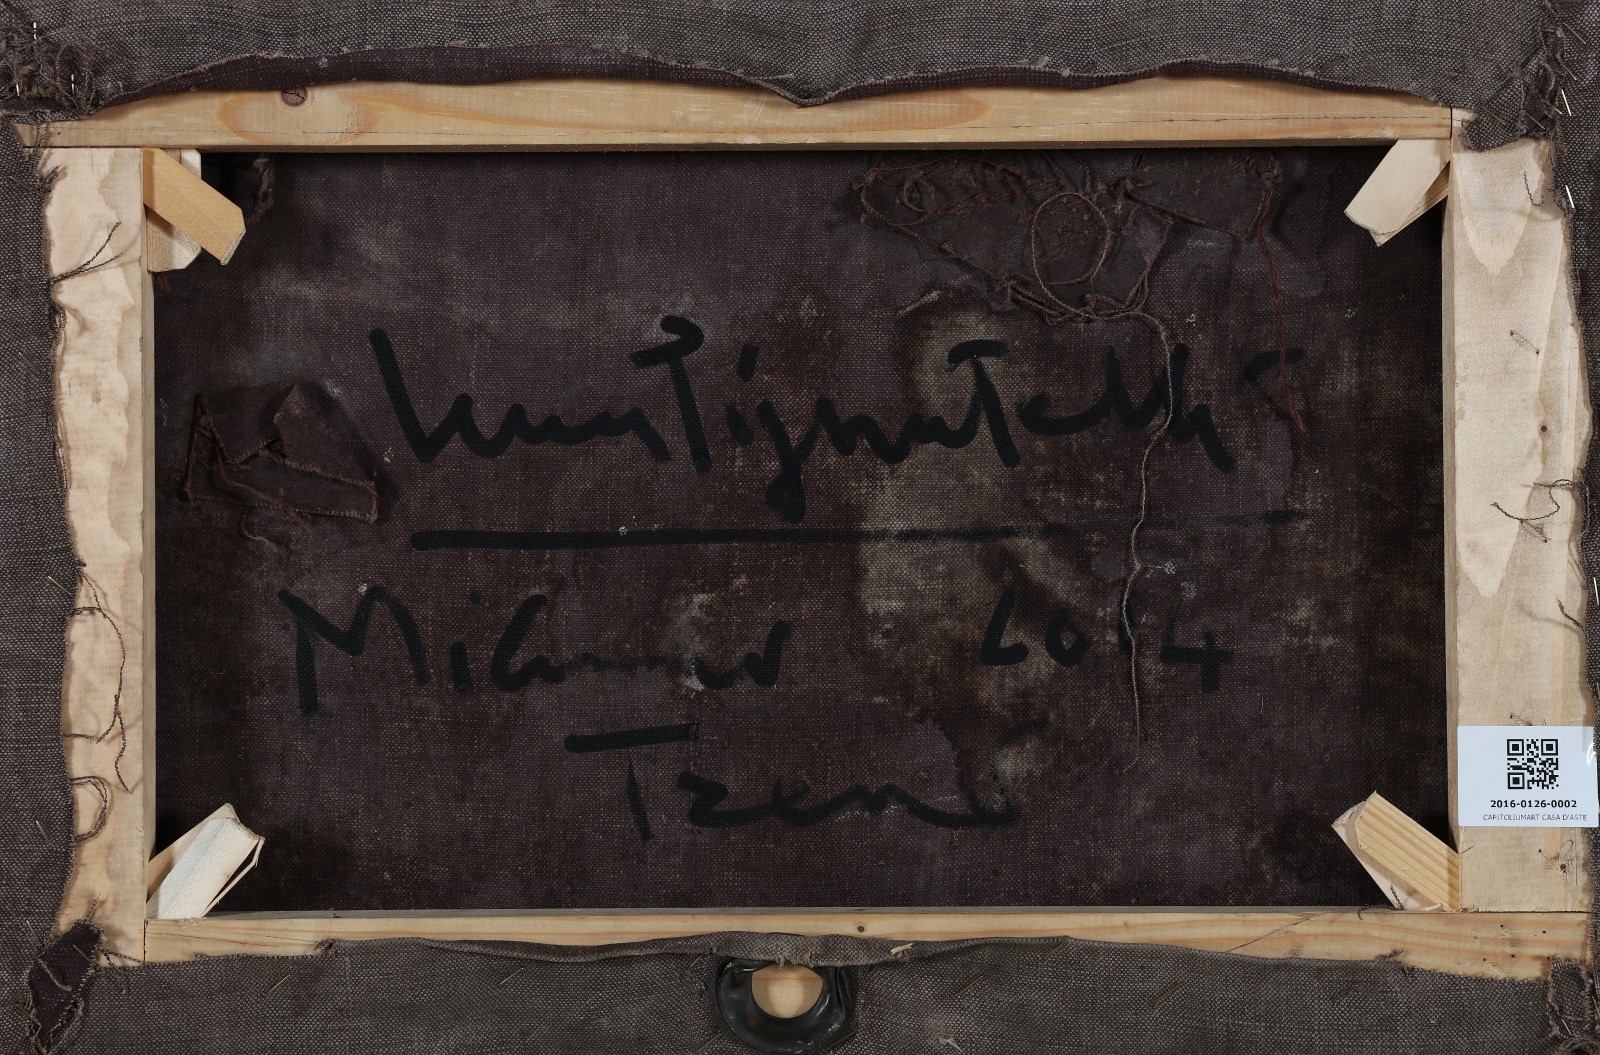 Luca Pignatelli
Milano 2014
Treno
2016-0126-0002
CAPITOLIUMART CASA D'ASTE